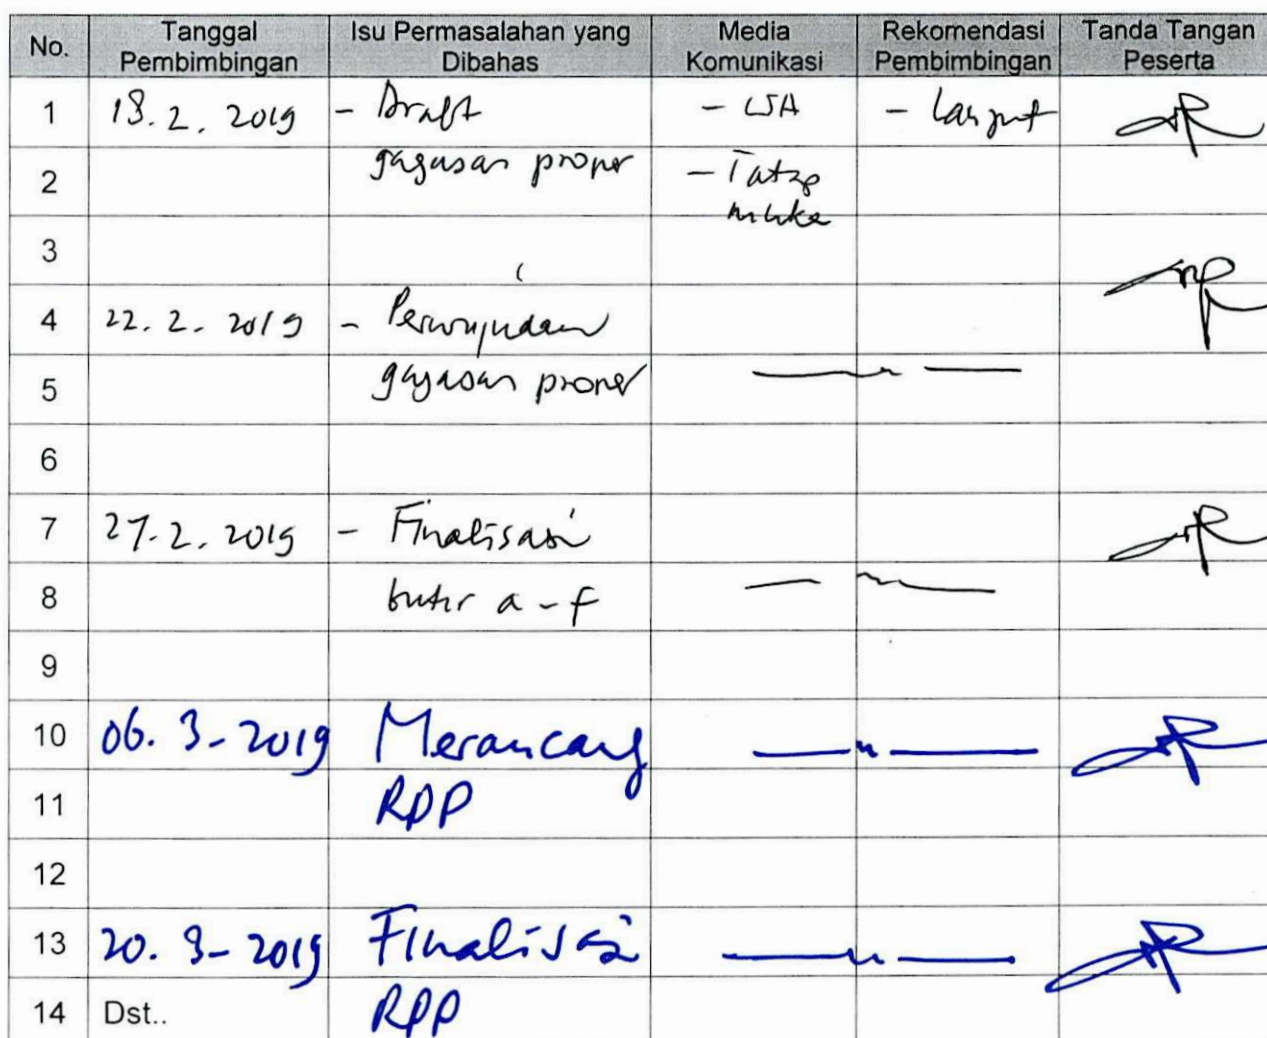 No. Tanggal Pembimbingan Isu Permasalahan yang Dibahas Media Komunikasi Rekomendasi Pembimbingan Tanda Tangan Peserta
1 18.2.2019 - Draft - WA - Lanjut
2 gagasan proper - Tatap
muka
3
4 22.2.2019 - Perwujudan
5 gagasan proper
6
7 27.2.2019 - Finalisasi
8 butir a - f
9
10 06.3-2019 Merancang
11 RPP
12
13 20.3-2019 Finalisasi
14 Dst.. RPP